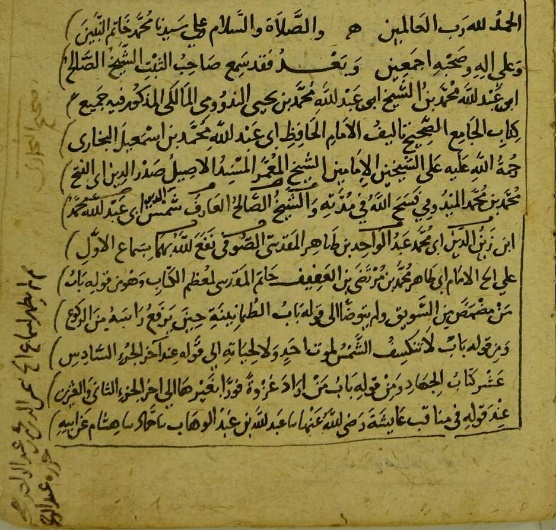 الحمد لله رب العالمين والصلاة والسلام على سيدنا محمد خاتم النبيين
وعلى اله وصحبه اجمعين وبعد فقد سمع صاحب الثبت الشيخ الصالح
ابي عبد الله محمد بن الشيخ ابي عبد الله محمد بن يحيى المالكي المذكور فيه جميع
كتاب الجامع الصحيح تاليف الامام الحافظ ابي عبد الله محمد بن اسمعيل البخاري
رحمة الله عليه على الشيخين الامامين الشيخ المعمر المسند الاصيل صدر الدين ابي الفتح
محمد بن محمد الميدومي فسح الله في مدته والشيخ الصالح العارف شمس الدين ابي عبد الله محمد
ابن زين الدين ابي محمد عبد الواحد بن طاهر المقدسي الصوفي نفع الله بهما بسماع الاول
على الامام ابي طاهر محمد بن مرتضى بن العفيف حاتم المقدسي لمعظم الكتاب وهو من قوله باب
من مضمض من السويق ولم يتوضا الى قوله باب الطمانينة حين يرفع راسه من الركوع
ومن قوله باب لا تنكسف الشمس لموت احد ولا لحياته الى قوله عند آخر الجزء السادس
عشر كتاب الجهاد ومن قوله باب من اراد غزوة فورا بغيرها الى اخر الجزء الثاني والعشرين
عند قوله في مناقب عايشة رضي الله عنها عبد الله بن عبد الوهاب حماد هشام عن ابيه
صحيح البخاري